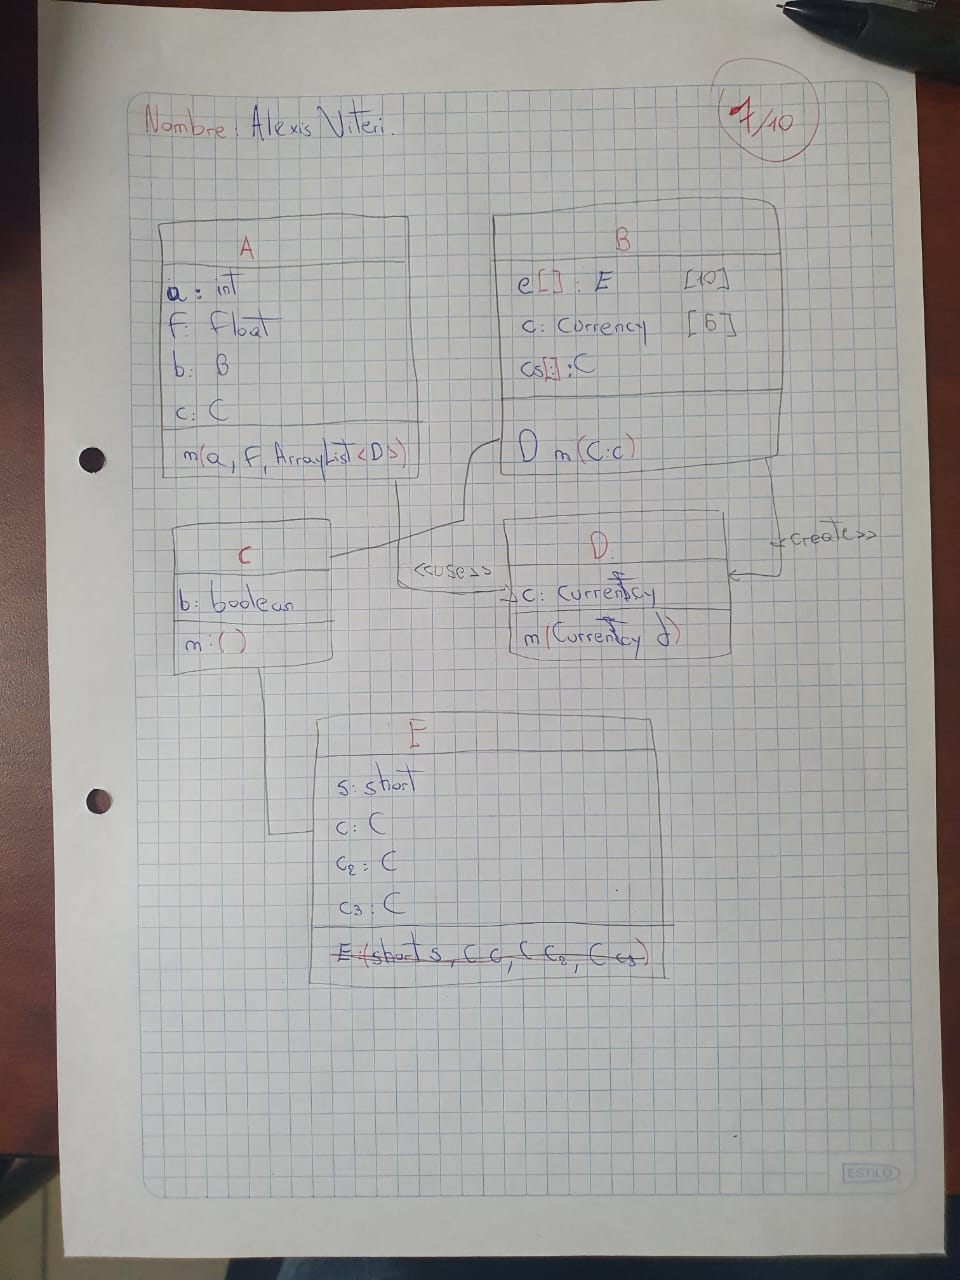 Nombre: Alexis Viteri.
7/10
A
a: int
f: Float
b: B
c: C
m(a, F, ArrayList<D>)
B
e[]: E [10]
c: Currency [5]
cs[]: C
D m(C:c)
C
b: boolean
m:()
<<use>>
D.
c: Currency
m(Currency d)
<create>>
E
s: short
c: C
c2: C
c3: C
E:(short s, C c, C c2, C c3)
ESTILO